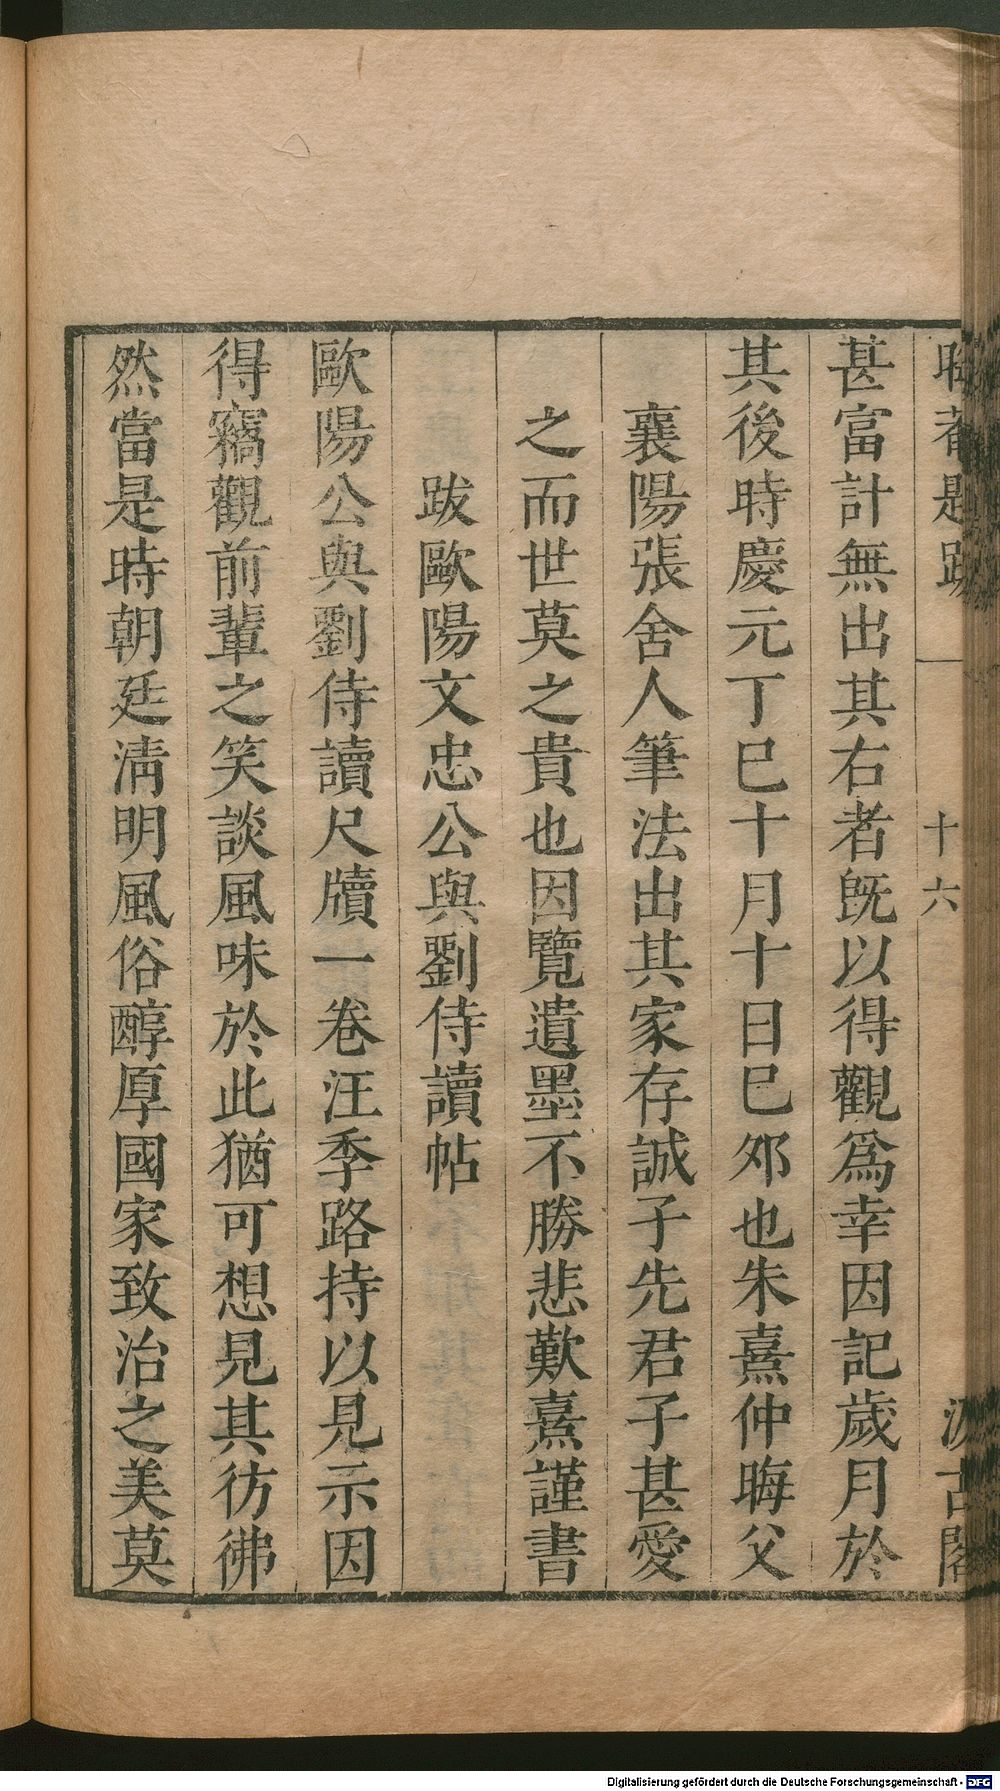 晦菴題跋 十六 汲古閣
甚富計無出其右者旣以得觀爲幸因記歲月於
其後時慶元丁巳十月十日巳夘也朱熹仲晦父
襄陽張舍人筆法出其家存誠子先君子甚愛
之而世莫之貴也因覽遺墨不勝悲歎熹謹書
跋歐陽文忠公與劉侍讀帖
歐陽公與劉侍讀尺牘一卷汪季路持以見示因
得竊觀前輩之笑談風味於此猶可想見其彷彿
然當是時朝廷淸明風俗醇厚國家致治之美莫
Digitalisierung gefördert durch die Deutsche Forschungsgemeinschaft - DFG